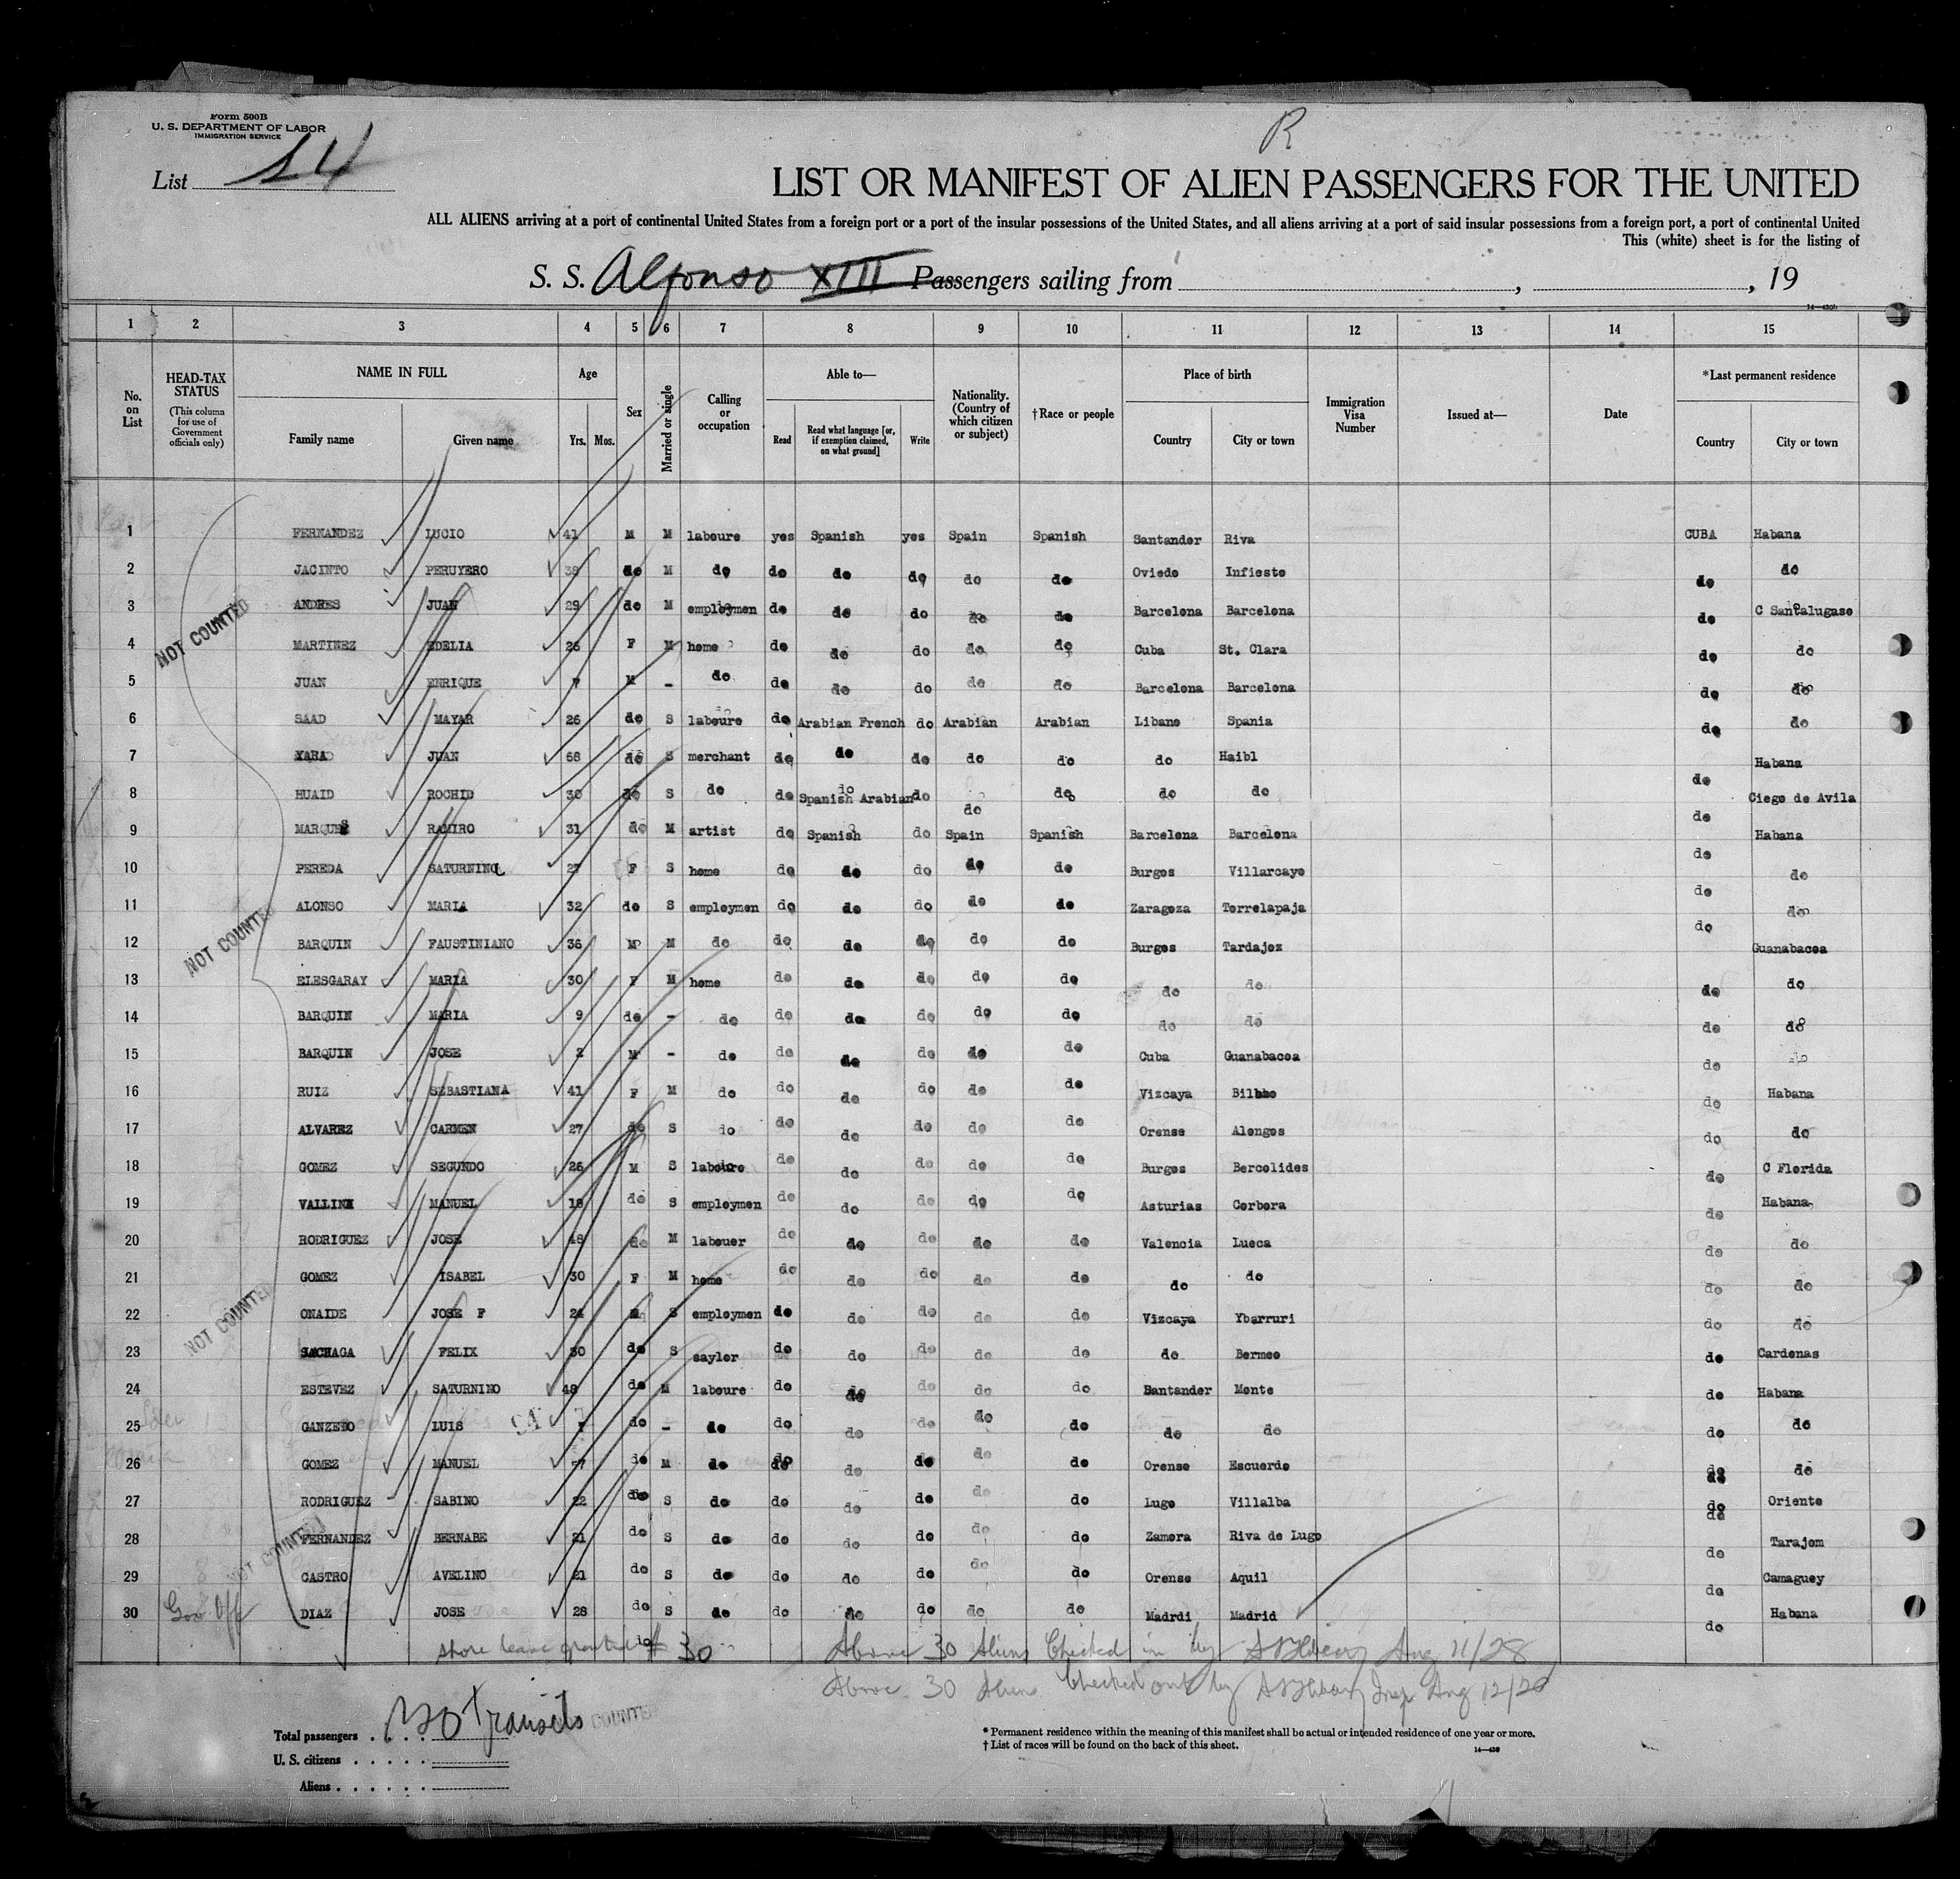 Form 500B
U. S. DEPARTMENT OF LABOR
IMMIGRATION SERVICE
R
List 14
LIST OR MANIFEST OF ALIEN PASSENGERS FOR THE UNITED
ALL ALIENS arriving at a port of continental United States from a foreign port or a port of the insular possessions of the United States, and all aliens arriving at a port of said insular possessions from a foreign port, a port of continental United
This (white) sheet is for the listing of
S. S. Alfonso XIII Passengers sailing from , , 19
14—430b
1 2 3 4 5 6 7 8 9 10 11 12 13 14 15
No. on List
HEAD-TAX STATUS (This column for use of Government officials only)
NAME IN FULL Family name Given name
Age Yrs. Mos.
Sex
Married or single
Calling or occupation
Able to— Read Read what language [or, if exemption claimed, on what ground] Write
Nationality. (Country of which citizen or subject)
†Race or people
Place of birth Country City or town
Immigration Visa Number
Issued at—
Date
*Last permanent residence Country City or town
1 FERNANDEZ LUCIO 41 M M laboure yes Spanish yes Spain Spanish Santander Riva CUBA Habana
2 JACINTO PERUYERO 38 do M do do do do do do Oviedo Infiesto do do
3 ANDRES JUAN 29 do M employmen do do do do do Barcelona Barcelona do C Santalugase
4 MARTINEZ EDELIA 26 F M home do do do do do Cuba St. Clara do do
5 JUAN ENRIQUE 7 M - do do do do do do Barcelona Barcelona do do
6 SAAD MAYAR 26 do S laboure do Arabian French do Arabian Arabian Libano Spania do do
7 YARA JUAN 68 do S merchant do do do do do do Haibl do Habana
8 HUAID ROCHID 30 do S do do Spanish Arabian do do do do do do Ciego de Avila
9 MARQUES RAMIRO 31 do M artist do Spanish do Spain Spanish Barcelona Barcelona do Habana
10 PEREDA SATURNINO 27 F S home do do do do do Burgos Villarcayo do do
11 ALONSO MARIA 32 do S employmen do do do do do Zaragoza Torrelapaja do do
12 BARQUIN FAUSTINIANO 36 M M do do do do do do Burgos Tardajoz do Guanabacoa
13 ELESGARAY MARIA 30 F M home do do do do do do do do do
14 BARQUIN MARIA 9 do - do do do do do do do do do do
15 BARQUIN JOSE 2 M - do do do do do do Cuba Guanabacoa do do
16 RUIZ SEBASTIANA 41 F M do do do do do do Vizcaya Bilbao do Habana
17 ALVAREZ CARMEN 27 do S do do do do do do Orense Alonges do do
18 GOMEZ SEGUNDO 26 M S laboure do do do do do Burgos Bercelides do C Florida
19 VALLINA MANUEL 18 do S employmen do do do do do Asturias Corbera do Habana
20 RODRIGUEZ JOSE 48 do M labouer do do do do do Valencia Lueca do do
21 GOMEZ ISABEL 30 F M home do do do do do do do do do
22 ONAIDE JOSE F 24 M S employmen do do do do do Vizcaya Ybarruri do do
23 FELIX 30 do S saylor do do do do do do Bermeo do Cardenas
24 ESTEVEZ SATURNINO 48 do M laboure do do do do do Santander Monte do Habana
25 GANZEDO LUIS do - do do do do do do do do do do
26 GOMEZ MANUEL do M do do do do do do Orense Escuerdo do do
27 RODRIGUEZ SABINO 22 do S do do do do do do Lugo Villalba do Oriente
28 FERNANDEZ BERNABE 21 do S do do do do do do Zamora Riva de Lugo do Tarajom
29 CASTRO AVELINO 21 do S do do do do do do Orense Aquil do Camaguey
30 Gov Off DIAZ JOSE 28 do S do do do do do do Madrdi Madrid do Habana
NOT COUNTED
NOT COUNTED
NOT COUNTED
NOT COUNTED
shore leave granted to 30 Above 30 Aliens Checked in by Aug 11/28
Above 30 Aliens Checked out by Insp Aug 12/28
Total passengers 30 Transits COUNTED
U. S. citizens
Aliens
* Permanent residence within the meaning of this manifest shall be actual or intended residence of one year or more.
† List of races will be found on the back of this sheet.
14—430